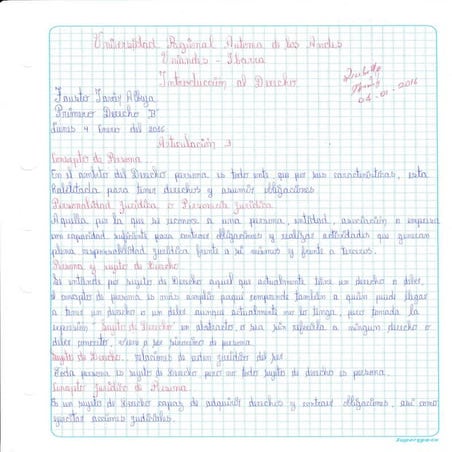 Universidad Regional Autonoma de los Andes
Uniandes - Ibarra
Introducción al Derecho
04-01-2016
Fausto Javier Albuja
Primero Derecho "B"
Lunes 4 Enero del 2016
Articulación 1
Concepto de Persona.
En el ambito del Derecho persona es todo ente que por sus características, esta
habilitada para tener derechos y asumir obligaciones
Personalidad Jurídica o Persona Jurídica
Aquella por la que se reconoce a una persona, entidad, asociación o empresa
con capacidad suficiente para contraer obligaciones y realizar actividades que generan
plena responsabilidad jurídica frente a si mismos y frente a terceros.
Persona y sujeto de Derecho
Se entiende por sujeto de Derecho aquel que actualmente tiene un derecho o deber
el concepto de persona es más amplio comprende también a quien puede llegar
a tener un derecho o un deber aunque actualmente no lo tenga, pero tomada la
expresión "Sujeto de Derecho" en abstracto, o sea sin referirla a ningun derecho o
deber concreto, viene a ser sinónimo de persona.
Sujeto de Derecho. relaciones de orden jurídico del ser
Toda persona es sujeto de Derecho pero no todo sujeto de derecho es persona.
Concepto Jurídico de Persona
Es un sujeto de Derecho capaz de adquirir derechos y contraer obligaciones, así como
ejercitar acciones judiciales.
Superspace